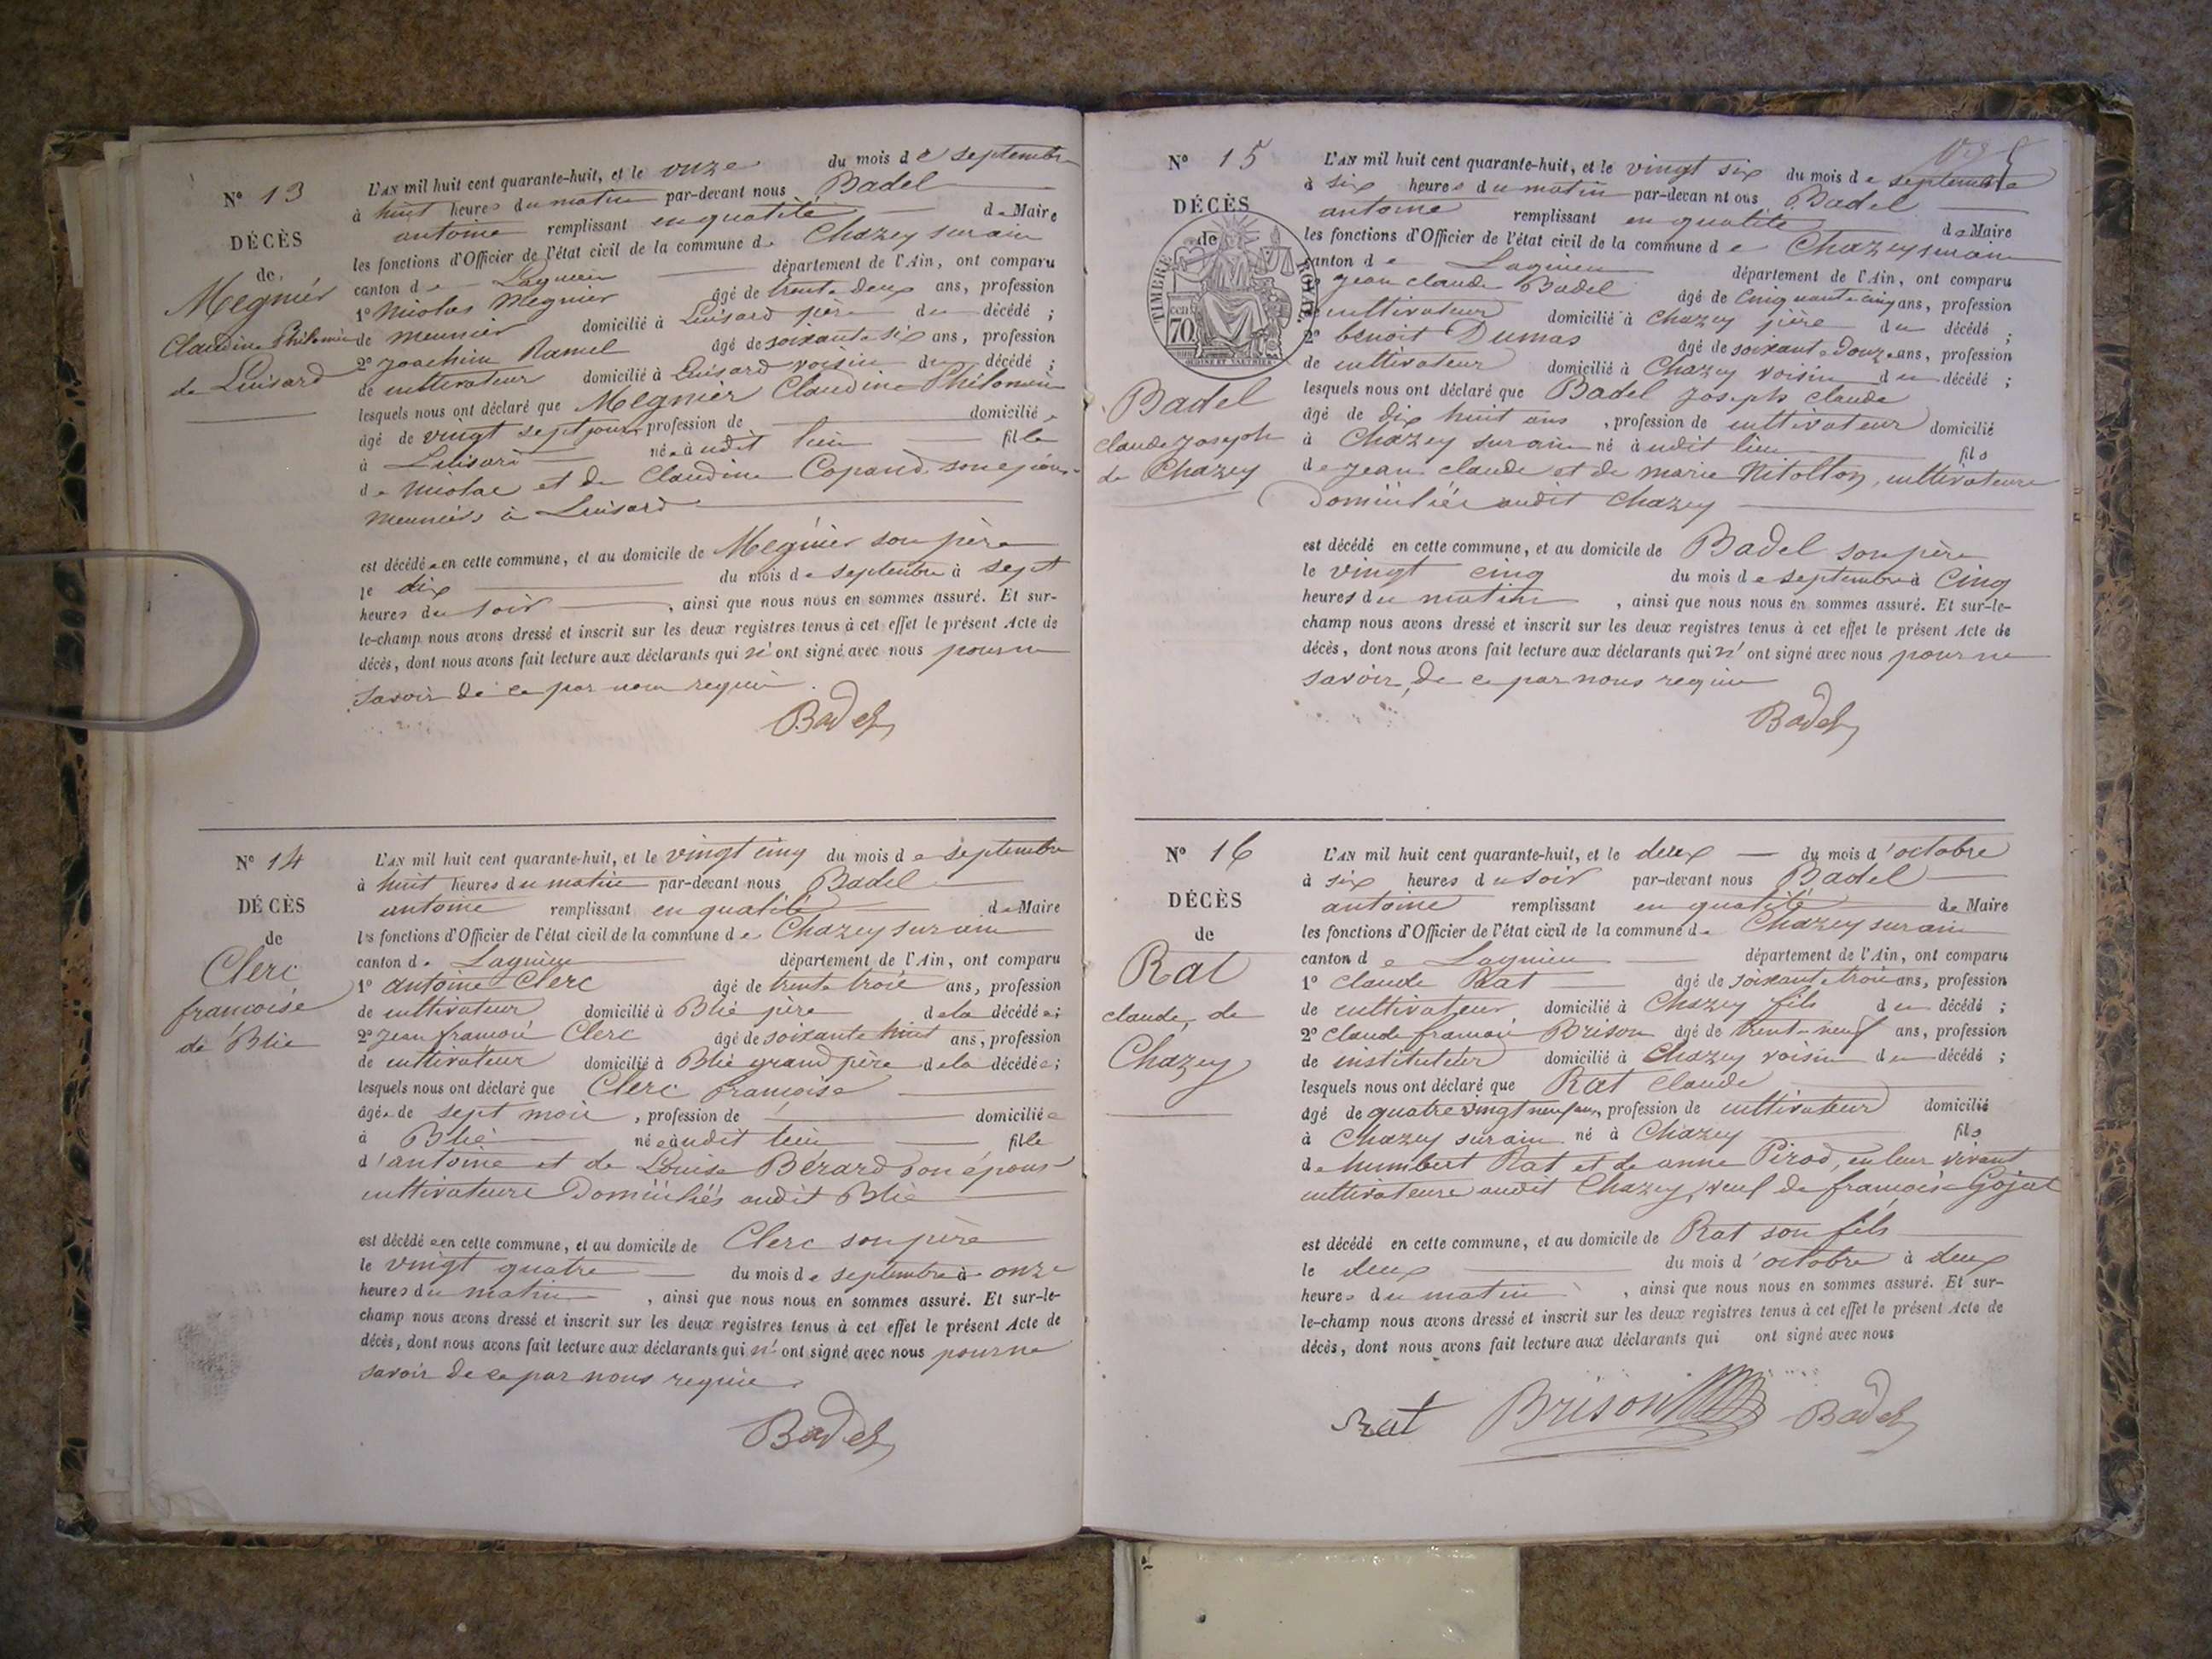 N° 13
DÉCÈS
de
Megnier
Claudine Philomène
de Luisard
L'AN mil huit cent quarante-huit, et le onze du mois de septembre
à huit heures du matin par-devant nous Badel
antoine remplissant en qualité de Maire
les fonctions d'Officier de l'état civil de la commune de Chazey sur ain
canton de Lagnieu département de l'Ain, ont comparu
1° Nicolas Megnier âgé de trente deux ans, profession
de meunier domicilié à Luisard père du décédé ;
2° Joachim Ramel âgé de soixante six ans, profession
de cultivateur domicilié à Luisard voisin du décédé ;
lesquels nous ont déclaré que Megnier Claudine Philomène
âgé de vingt sept jours profession de domicilié e
à Luisard née audit lieu fille
de Nicolas et de Claudine Copand son épouse
meuniers à Luisard
est décédée en cette commune, et au domicile de Megnier son père
le dix du mois de septembre à sept
heures du soir , ainsi que nous nous en sommes assuré. Et sur-
le-champ nous avons dressé et inscrit sur les deux registres tenus à cet effet le présent Acte de
décès, dont nous avons fait lecture aux déclarants qui n' ont signé avec nous pour ne
savoir de ce par nous requis
Badel
N° 14
DÉCÈS
de
Clerc
francoise
de Blie
L'AN mil huit cent quarante-huit, et le vingt cinq du mois de septembre
à huit heures du matin par-devant nous Badel
antoine remplissant en qualité de Maire
les fonctions d'Officier de l'état civil de la commune de Chazey sur ain
canton de Lagnieu département de l'Ain, ont comparu
1° antoine Clerc âgé de trente trois ans, profession
de cultivateur domicilié à Blie père de la décédée ;
2° Jean francois Clerc âgé de soixante huit ans, profession
de cultivateur domicilié à Blie grand père de la décédée ;
lesquels nous ont déclaré que Clerc françoise
âgée de sept mois , profession de domiciliée
à Blie née audit lieu fille
d'antoine et de Louise Bérard son épouse
cultivateurs Domiciliés audit Blie
est décédée en cette commune, et au domicile de Clerc son père
le vingt quatre du mois de septembre à onze
heures du matin , ainsi que nous nous en sommes assuré. Et sur-le-
champ nous avons dressé et inscrit sur les deux registres tenus à cet effet le présent Acte de
décès, dont nous avons fait lecture aux déclarants qui n' ont signé avec nous pour ne
savoir de ce par nous requis
Badel
N° 15
DÉCÈS
de
TIMBRE ROYAL
cen 70
OUDINE ET GALTHIER
Badel
claude Joseph
de Chazey
L'AN mil huit cent quarante-huit, et le vingt six du mois de septembre
à six heures du matin par-devan nt ous Badel
antoine remplissant en qualité de Maire
les fonctions d'Officier de l'état civil de la commune de Chazey sur ain
canton de Lagnieu département de l'Ain, ont comparu
Jean claude Badel âgé de Cinquante cinq ans, profession
cultivateur domicilié à Chazey père du décédé ;
2° benoit Dumas âgé de soixante Douze ans, profession
de cultivateur domicilié à Chazey voisin du décédé ;
lesquels nous ont déclaré que Badel Joseph claude
âgé de dix huit ans , profession de cultivateur domicilié
à Chazey sur ain né audit lieu fils
de jean claude et de marie Nitolloz, cultivateurs
Domiciliés audit Chazey
est décédé en cette commune, et au domicile de Badel son père
le vingt cinq du mois de septembre à Cinq
heures du matin , ainsi que nous nous en sommes assuré. Et sur-le-
champ nous avons dressé et inscrit sur les deux registres tenus à cet effet le présent Acte de
décès, dont nous avons fait lecture aux déclarants qui n' ont signé avec nous pour ne
savoir, de ce par nous requis
Badel
N° 16
DÉCÈS
de
Rat
claude, de
Chazey
L'AN mil huit cent quarante-huit, et le deux du mois d'octobre
à six heures du soir par-devant nous Badel
antoine remplissant en qualité de Maire
les fonctions d'Officier de l'état civil de la commune de Chazey sur ain
canton de Lagnieu département de l'Ain, ont comparu
1° claude Rat âgé de soixante trois ans, profession
de cultivateur domicilié à Chazey fils du décédé ;
2° claude francois Brison âgé de trente neuf ans, profession
de instituteur domicilié à Chazey voisin du décédé ;
lesquels nous ont déclaré que Rat Claude
âgé de quatre vingt neuf ans, profession de cultivateur domicilié
à Chazey sur ain né à Chazey fils
de humbert Rat et de anne Pirod, en leur vivant
cultivateurs audit Chazey, veuf de françoise Gojat
est décédé en cette commune, et au domicile de Rat son fils
le deux du mois d'octobre à deux
heures du matin , ainsi que nous nous en sommes assuré. Et sur-
le-champ nous avons dressé et inscrit sur les deux registres tenus à cet effet le présent Acte de
décès, dont nous avons fait lecture aux déclarants qui ont signé avec nous
Rat Brison Badel